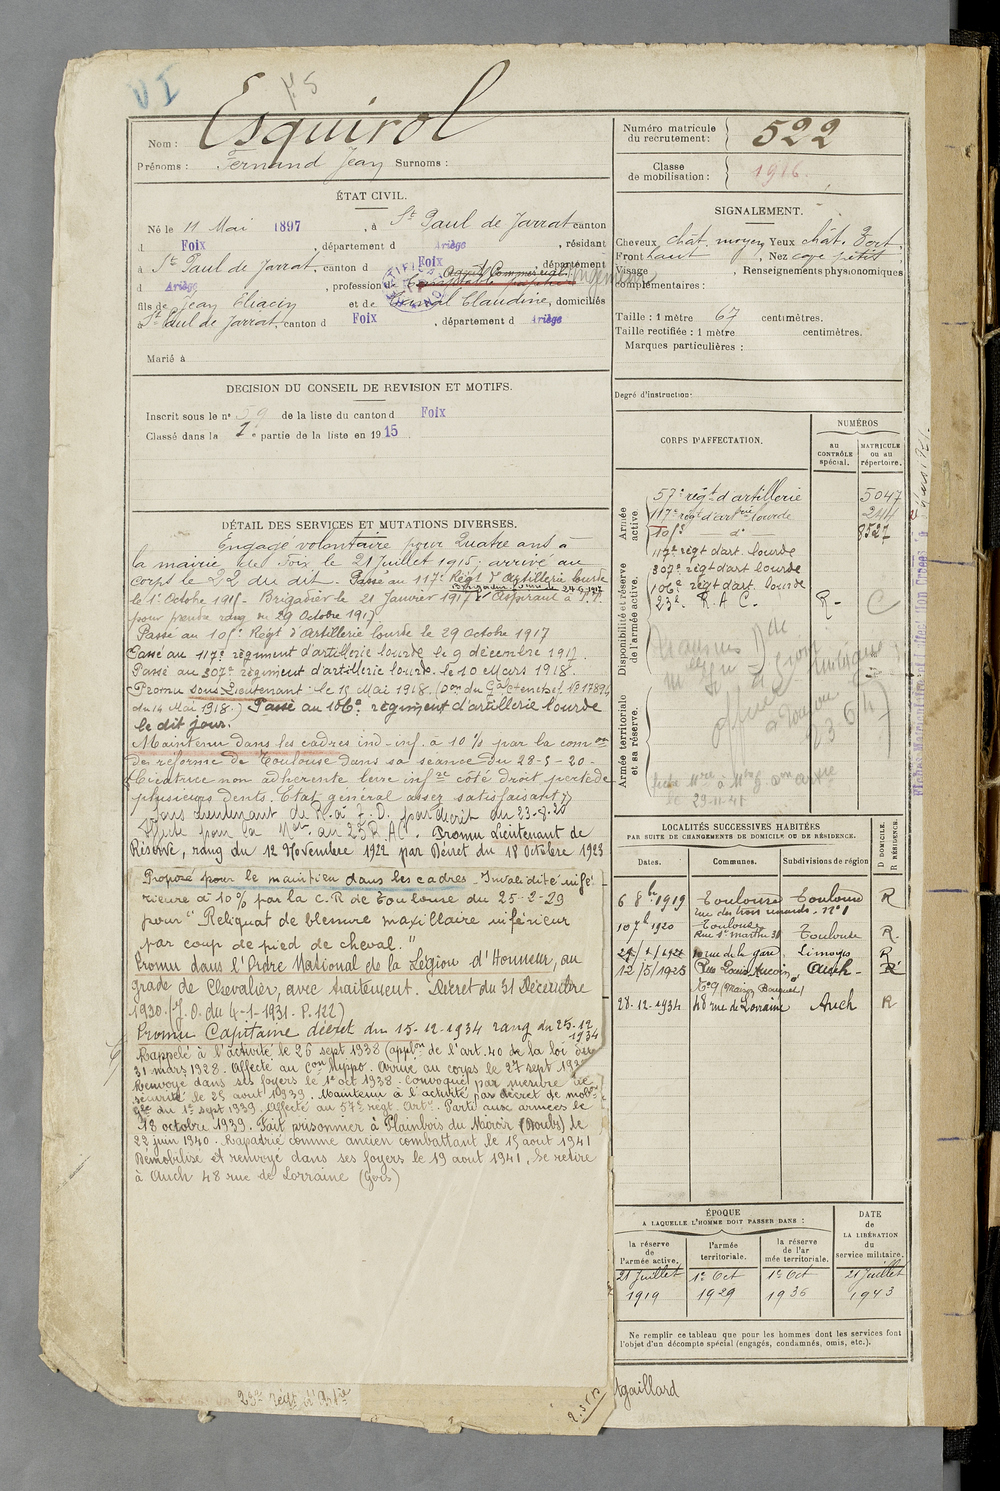 VI
Esquirol
Nom :
Prénoms : Fernand Jean Surnoms :
Numéro matricule du recrutement : 522
Classe de mobilisation : 1916.
ÉTAT CIVIL.
Né le 11 Mai 1897, à St Paul de Jarrat canton
d Foix, département d Ariège, résidant
à St Paul de Jarrat, canton d Foix, département
d Ariège, profession de
fils de Jean et de Claudine, domiciliés
St Paul de Jarrat, canton d Foix, département d Ariège
Marié à
DECISION DU CONSEIL DE REVISION ET MOTIFS.
Inscrit sous le n° 59 de la liste du canton d Foix
Classé dans la 2e partie de la liste en 1915
DÉTAIL DES SERVICES ET MUTATIONS DIVERSES.
Engagé volontaire pour Quatre ans à
la mairie de Foix le 21 Juillet 1915; arrivé au
corps le 22 du dit. Passé au 117e Régt d'Artillerie lourde
le 1er Octobre 1915. Brigadier le 21 Janvier 1917. Aspirant à T.T.
pour prendre rang du 29 Octobre 1917
Passé au 105e Régt d'Artillerie lourde le 29 octobre 1917
Passé au 117e régiment d'artillerie lourde le 9 décembre 1917.
Passé au 307e régiment d'artillerie lourde le 10 Mars 1918.
Promu sous Lieutenant le 15 Mai 1918. (Don du Gal en chef N° 17894
du 14 Mai 1918.) Passé au 106e régiment d'artillerie lourde
le dit jour.
Maintenu dans les cadres ind-inf. à 10 % par la comon
de réforme de Toulouse dans sa séance du 28-5-20-
(Cicatrice non adhérente lèvre infre côté droit perte de
plusieurs dents. Etat général assez satisfaisant)
Sous Lieutenant de R. à T.D. par décret du 23-8-20
au 23 R.A.C. Promu Lieutenant de
Réserve, rang du 12 Novembre 1922 par Décret du 18 Octobre 1923
Proposé pour le maintien dans les cadres - Invalidité infé
rieure à 10% par la C.R de Toulouse du 25-2-29
pour " Reliquat de blessure maxillaire inférieur
par coup de pied de cheval."
Promu dans l'Ordre National de la Légion d'Honneur, au
grade de Chevalier, avec traitement. Décret du 31 Décembre
1930. (J.O. du 4-1-1931. P. 122)
Promu Capitaine décret du 15-12-1934 rang du 25-12
1934
Rappelé à l'activité le 26 sept 1938 (applon de l'art. 40 de la loi du
31 mars 1928. Affecté au Con Hippo. Arrivé au corps le 27 sept 1938
Renvoyé dans ses foyers le 1er oct 1938. Convoqué par mesure de
sécurité le 25 août 1939. Maintenu à l'activité par décret de mobon
gle du 1er sept 1939. Affecté au 57e régt. Artie. Parti aux armées le
18 octobre 1939. Fait prisonnier à Plainbois du Miroir (Doubs) le
22 juin 1940. Rapatrié comme ancien combattant le 15 août 1941
Démobilisé et renvoyé dans ses foyers le 19 août 1941. Se retire
à Auch 48 rue de Lorraine (Gers)
SIGNALEMENT.
Cheveux chât. moyen Yeux chât. foct.
Front haut, Nez cave petit
Visage, Renseignements physionomiques
complémentaires :
Taille : 1 mètre 67 centimètres.
Taille rectifiée : 1 mètre centimètres.
Marques particulières :
Degré d'instruction·
CORPS D'AFFECTATION.
NUMÉROS
AU CONTRÔLE spécial.
MATRICULE ou au répertoire.
Armée active
57e régt d'artillerie 5047
117e régt d'artie lourde 244
105e do 8527
Disponibilité et réserve de l'armée active.
117e régt d'art. lourde
307e régt d'art lourde
106e régt d'art. lourde
23e R.A.C. R- C
Armée territoriale et sa réserve.
le 29-11-41
LOCALITÉS SUCCESSIVES HABITÉES
PAR SUITE DE CHANGEMENTS DE DOMICILE OU DE RÉSIDENCE.
Dates. Communes. Subdivisions de région D DOMICILE. R RÉSIDENCE.
6 8bre 1919 Toulouse Toulouse R
rue des trois renards - n° 1
10 7bre 1920 Toulouse Toulouse R.
rue de la gare. Limoges R
12/5/1925 Auch - R
n° 9 (Maison Bouquet)
28-12-1934 48 rue de Lorraine Auch R
ÉPOQUE
A LAQUELLE L'HOMME DOIT PASSER DANS :
DATE de LA LIBÉRATION du service militaire.
la réserve de l'armée active.
l'armée territoriale.
la réserve de l'ar mée territoriale.
21 Juillet 1919
1er Oct 1929
1er Oct 1936
21 Juillet 1943
Ne remplir ce tableau que pour les hommes dont les services font
l'objet d'un décompte spécial (engagés, condamnés, omis, etc.).
23e régt d'Artie
tgaillard